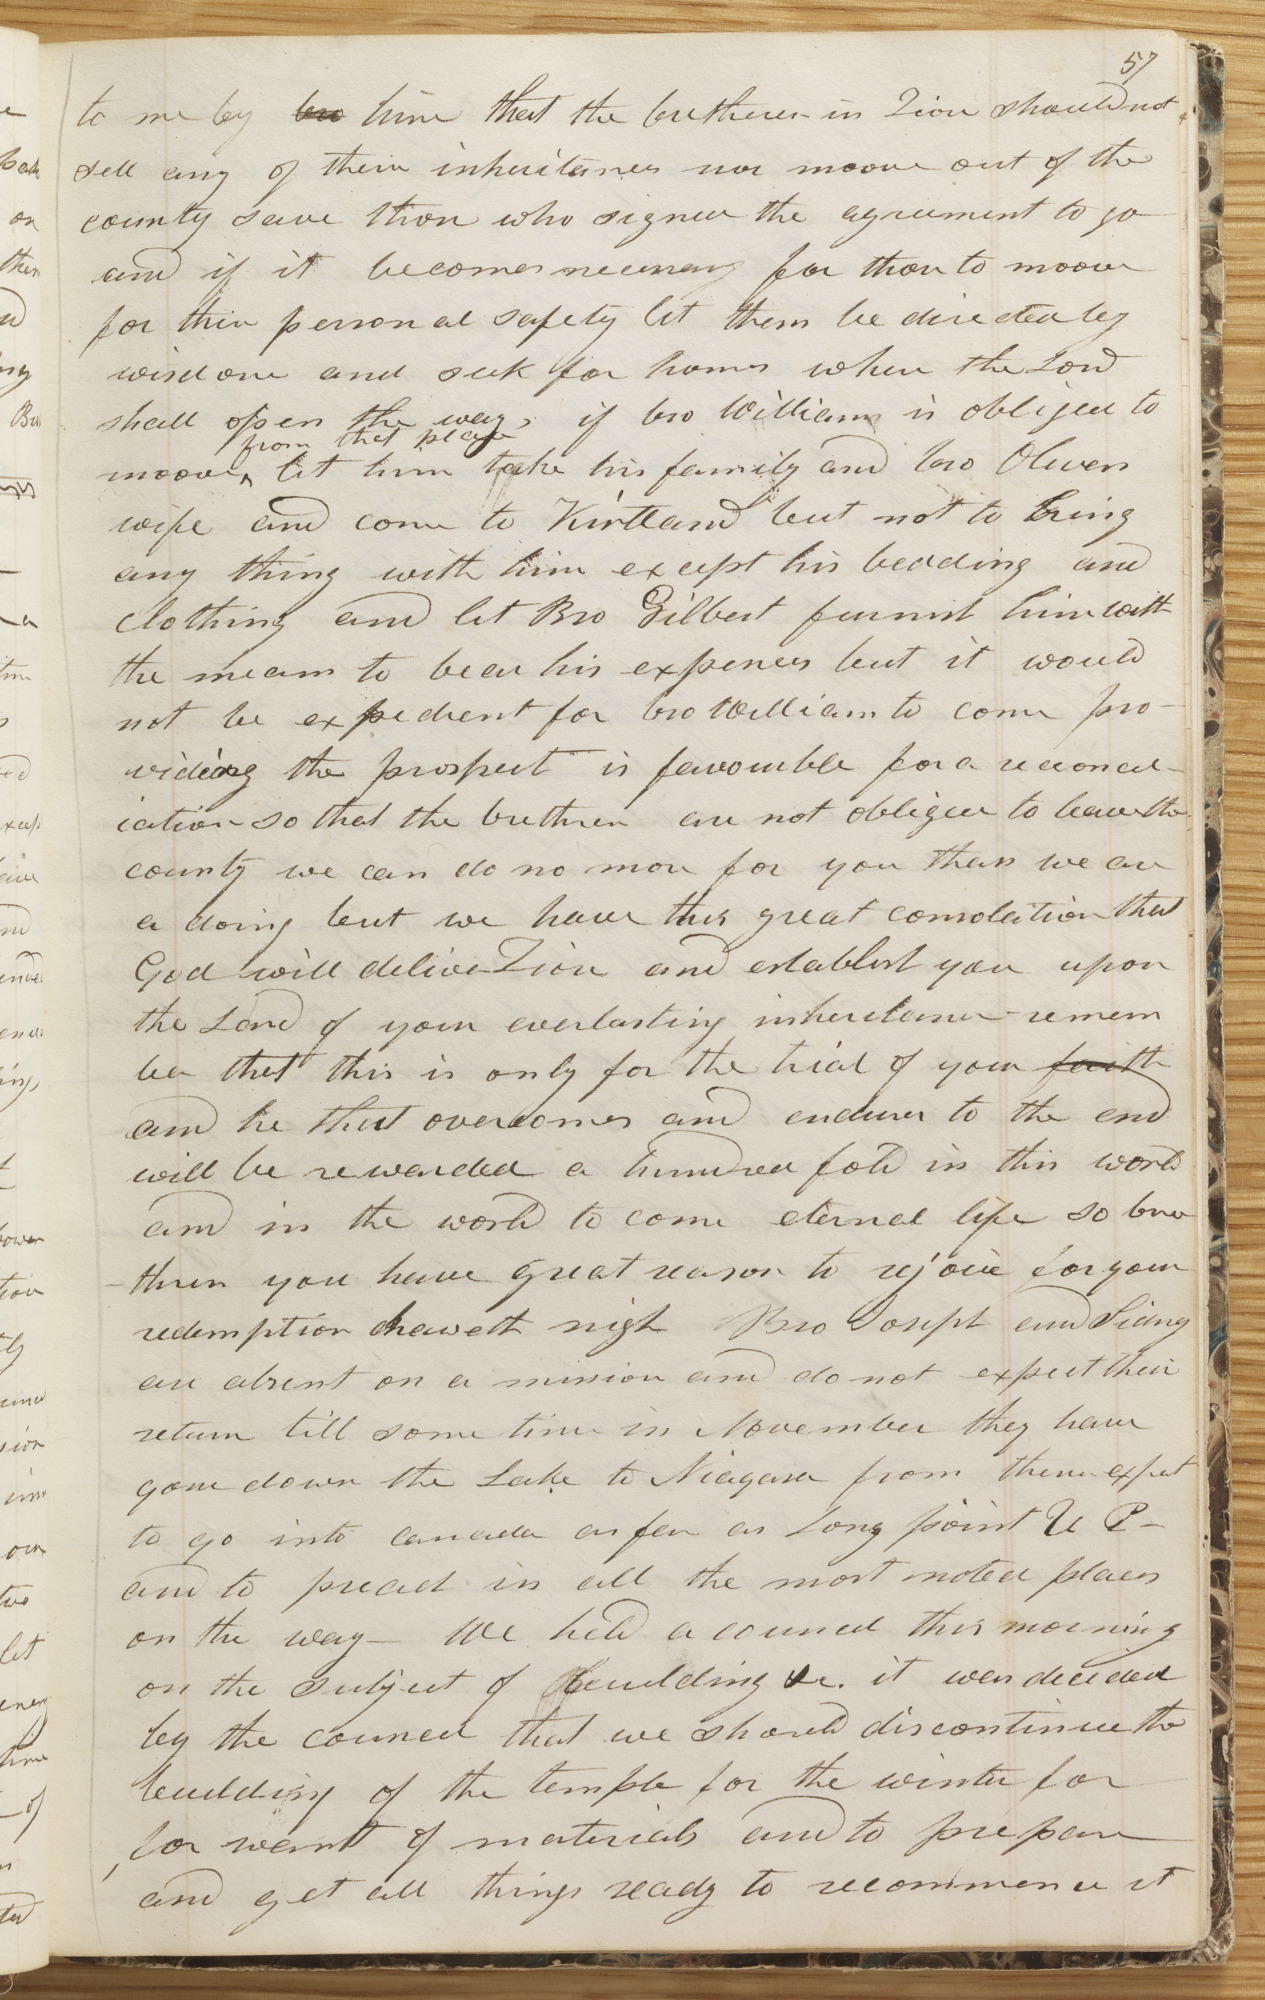 57
to me by bro him that the bretheren in Zion should not
sell any of their inheritances nor moove out of the
county save those who signed the agreement to go
and if it becomes necessary for those to moove
for their personal safety let them be directed by
wisdom and seek for homes where the Lord
shall open the way, if bro William is obliged to
from that place
moove, let him take his family and bro Olivers
wife and come to Kirtland but not to bring
any thing with him except his bedding and
clothing and let Bro Gilbert furnish him with
the means to bear his expences but it would
not be expedient for bro William to come pro-
viding the prospect is favourable for a reconcil-
iation so that the brethren are not obliged to leave the
county we can do no more for you than we are
a doing but we have this great consolation that
God will deliver Zion and establish you upon
the Land of your everlasting inheritance remem
ber that this is only for the trial of your faith
and he that overcomes and endures to the end
will be rewarded a hundred fold in this world
and in the world to come eternal life so bre
-thren you have great reason to rejoice for your
redemption draweth nigh Bro Joseph and Sidney
are absent on a mission and do not expect their
return till some time in November they have
gone down the Lake to Niagara from there expect
to go into canada as far as Long point U C-
and to preach in all the most noted places
on the way- We held a council this morning
on the subject of building &c. it was decided
by the council that we should discontinue the
building of the temple for the winter for
for want of materials and to prepare
and get all things ready to recommence it